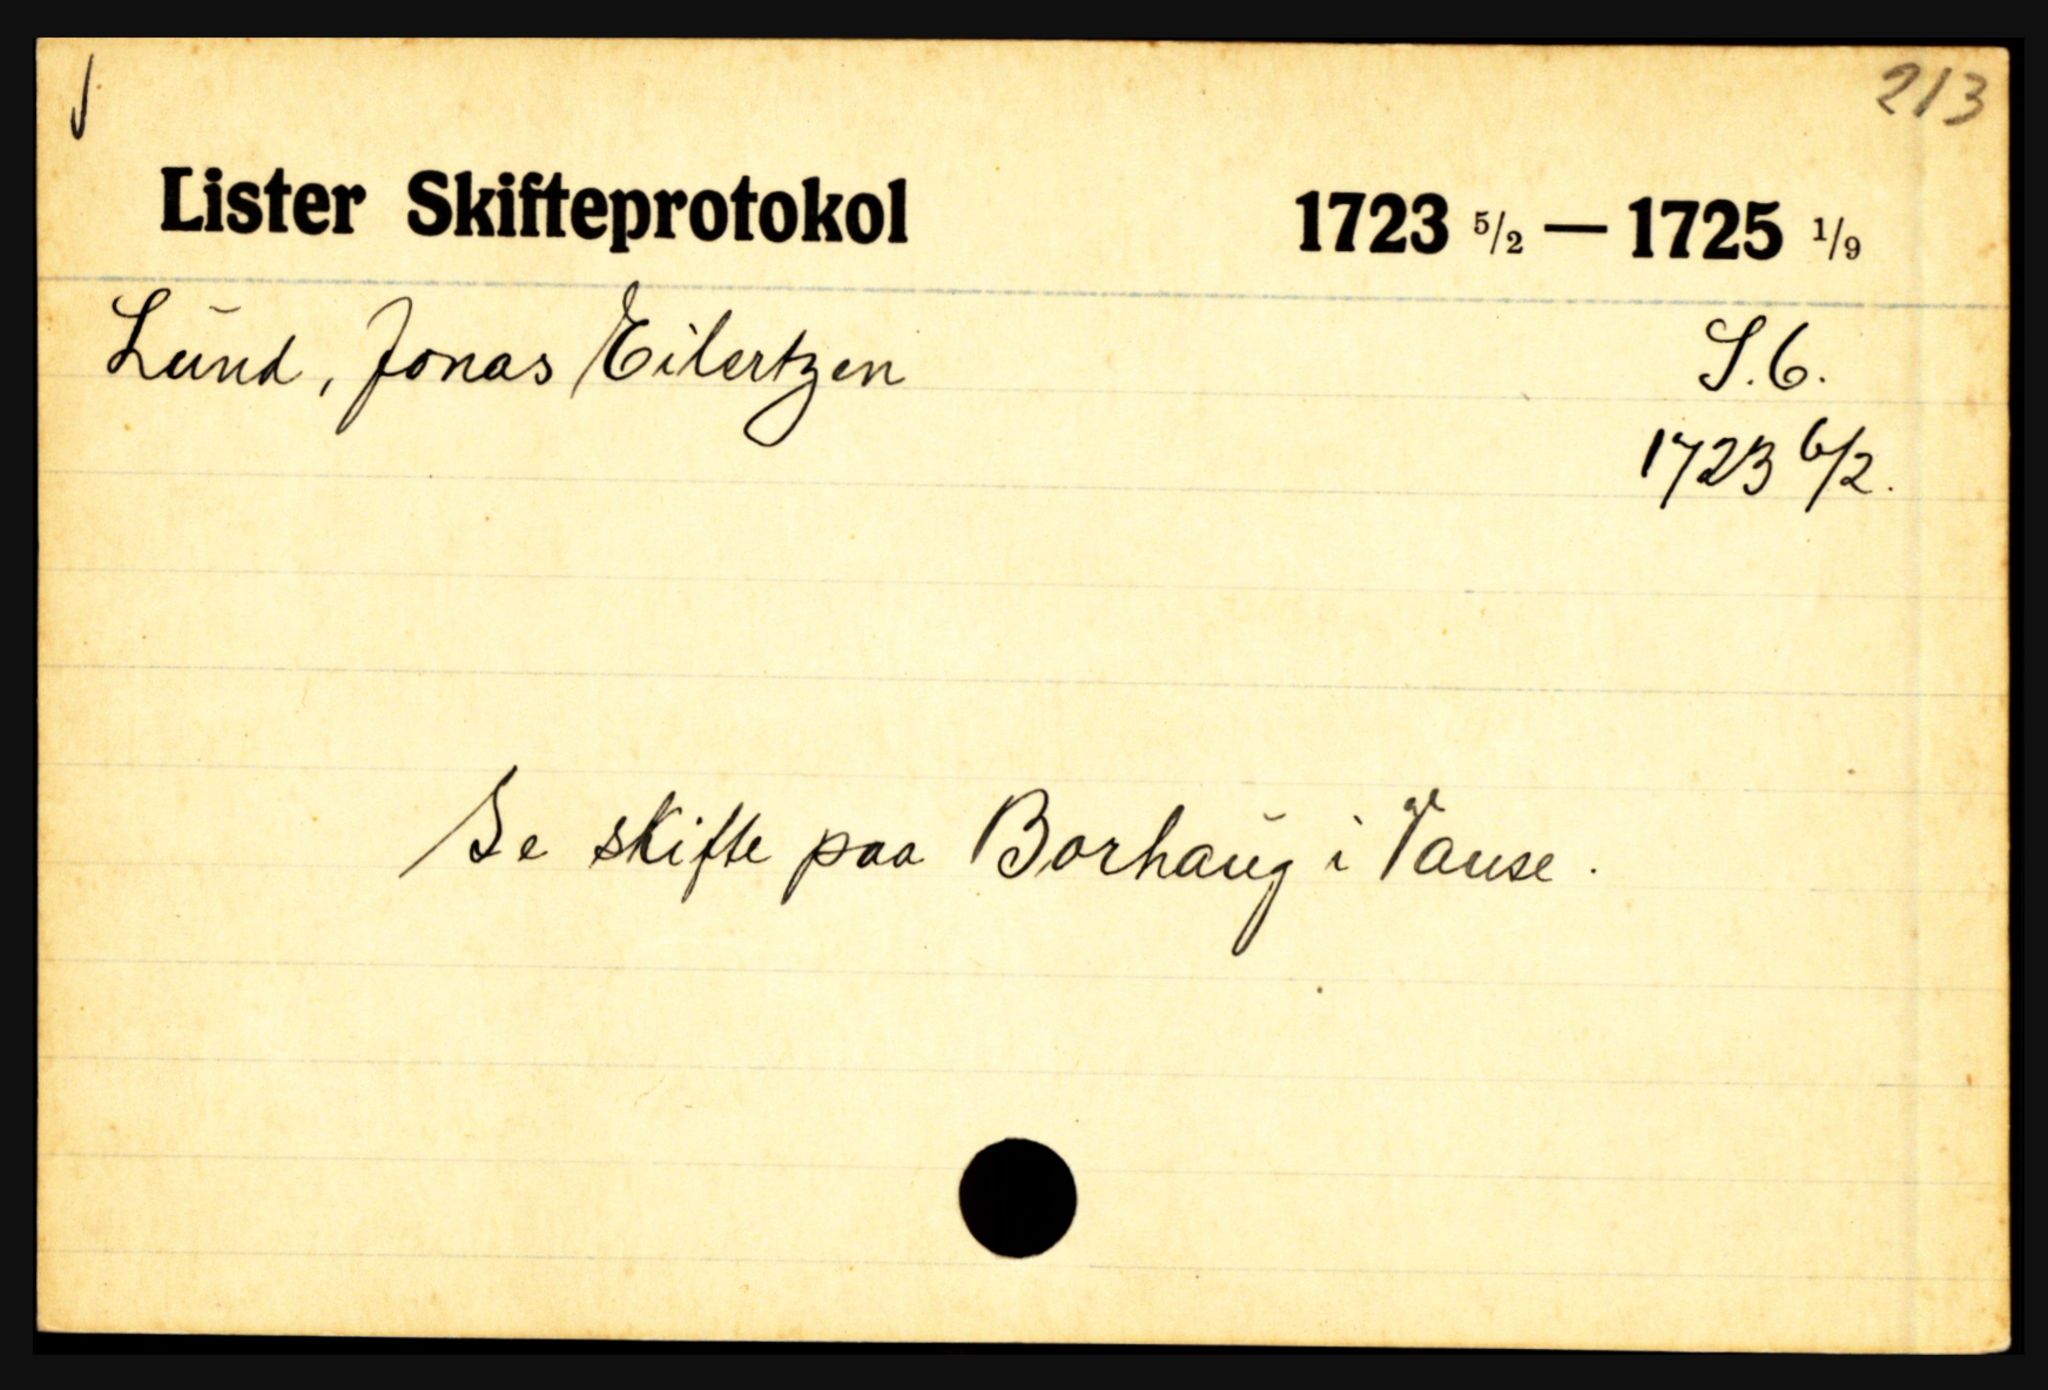 213
Lister Skifteprotokol 1723 5/2 — 1725 1/9
Lund, Jonas Eilertzen S. 6.
1723 6/2.
Se skifte paa Borhaug i Vanse.